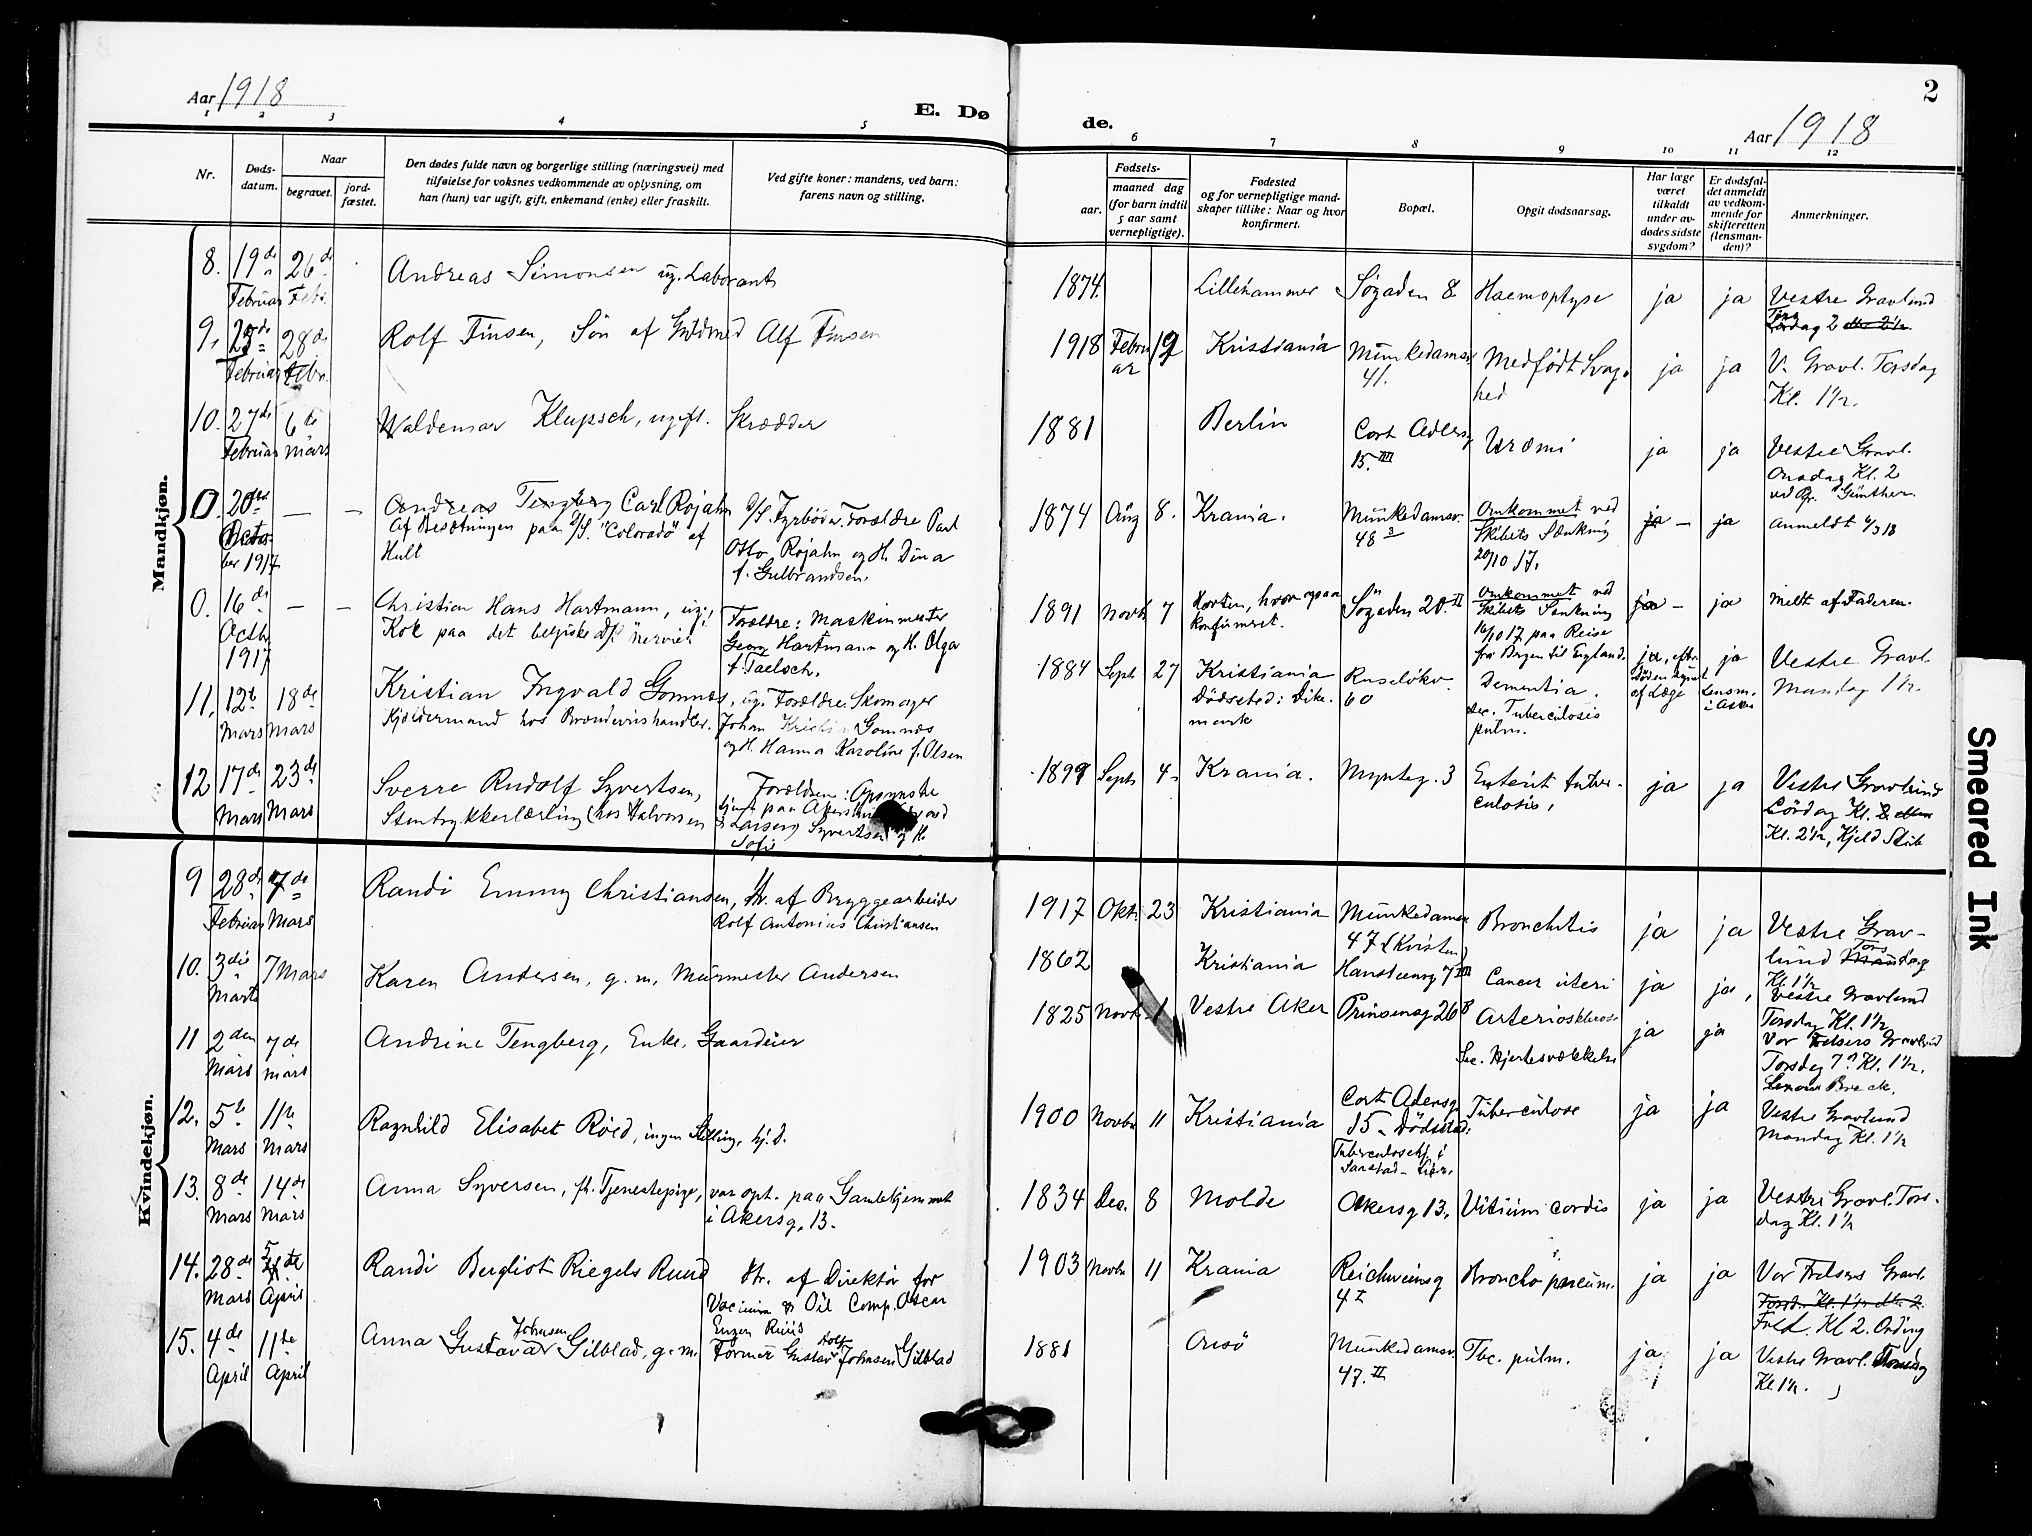 2
Aar 1918
E. Dø
de.
Aar 1918
1 2 3 4 5 6 7 8 9 10 11 12
Nr.
Døds-
datum.
Naar
begravet.
jord-
fæstet.
Den dødes fulde navn og borgerlige stilling (næringsvei) med
tilføielse for voksnes vedkommende av oplysning, om
han (hun) var ugift, gift, enkemand (enke) eller fraskilt.
Ved gifte koner: mandens, ved barn:
farens navn og stilling.
Fødsels-
aar.
maaned dag
(for barn indtil
5 aar samt
vernepligtige).
Fødested
og for vernepligtige mand-
skaper tillike: Naar og hvor
konfirmert.
Bopæl.
Opgit dødsaarsag.
Har læge
været
tilkaldt
under av-
dødes sidste
sygdom?
Er dødsfal-
det anmeldt
av vedkom-
mende for
skifteretten
(lensman-
den)?
Anmerkninger.
Mandkjøn.
8. 19de Februar 26de Febr. Andreas Simonsen ug. Laborant 1874. Lillehammer Søgaden 8 Haemoptyse ja ja Vestre Gravlund
Lørdag 2
9. 23de Februar 28de Febr. Rolf Finsen, Søn af Alf Finsen 1918 Februar 19 Kristiania Munkedamsv. 41. Medfødt Svag-
hed ja ja V. Gravl. Torsdag
Kl. 1½.
10. 27de Februar 6te Mars Waldemar Klupsch, ugift. Skrædder 1881 Berlin Cort Adelersg 15. III Uræmi ja ja Vestre Gravl.
Onsdag Kl. 2
ved Pr. Günther
0. 20de October 1917 — — Andreas Tengberg Carl Rojahn
Af Besætningen paa D/S. "Colorado" af
Hull
Fyrbøder. Forældre Paul
Otto Rojahn og H. Dina
f. Gulbrandsen.
1874 Aug 8. Krania. Munkedamsv. 48 3 Omkommet ved
Skibets Sænkning
20/10 17. ja — ja anmeldt 4/3 18
0. 16de Octbr 1917 — — Christian Hans Hartmann, ug.,
Kok paa det belgiske D/S "Nervier"
Forældre: Maskinmester
Georg Hartmann og H. Olga
f. Taelsch.
1891 Novb 7 Horten, hvor ogsaa
konfirmeret. Søgaden 20 II Omkommet ved
Skibets Sænkning
16/10 17 paa Reise
fra Bergen til England. ja — ja meldt af Faderen.
11. 12te Mars 18de Mars Kristian Ingvald Gomnæs, ug.
Kjeldermand hos Brændevinshandler.
Forældre: Skomager
Johan Kristian Gomnæs
og H. Hanna Karoline f. Olsen
1884 Septb 27 Kristiania
Dødssted: Dike-
mark Ruseløkv. 60 Dementia.
Sec. Tuberculosis
pulm. ja, eft.
Døden
af Læge ja
Lensm.
i Asker Vestre Gravl.
Mandag 1½.
12 17de Mars 23de Mars Sverre Rudolf Syvertsen,
Stentrykkerlærling (hos Halvorsen
& Larsen)
Forældre: Opsynsbe
tjent paa Akershus
Syvertsen og H.
Sofie
1899 Septb 4. Krania. Myntg. 3 Enterit tuber-
culosis, ja ja Vestre Gravlund
Lørdag Kl. 2
Kl. 2½, Kjeld Stub
Kvindekjøn.
9 28de Februar 7de Mars Randi Emmy Christiansen, Dtr. af Bryggearbeider
Rolf Antonius Christiansen 1917 Oktb 23 Kristiania Munkedamsv 47 (Kvisten) Bronchitis ja ja Vestre Grav-
lund Torsdag
Kl. 1½
10. 3die Marts 7 Mars Karen Andersen, g. m. Murmester Andersen 1862 Kristiania Hansteensg 7 III Cancer uteri ja ja, Vestre Gravlund
Torsdag Kl. 1½
11 2den Mars 7de Mars Andrine Tengberg, Enke, Gaardeier 1825 Novb. 1 Vestre Aker Prinsensg 26 B Arteriosklerose
Sec. Hjertesvækkelse ja ja Vor Frelsers Gravlund
Torsdag 7de Kl. 1½.
12. 5te Mars 11te Mars Ragnhild Elisabet Røed, ingen Stilling, hj. D. 1900 Novbr 11 Kristiania Cort Adelersg 15 Dødssted:
Tuberculosehj. i
Lier. Tuberculose ja ja Vestre Gravlund
Mandag Kl. 1½
13. 8de Mars 14de Mars Anna Syversen, fh. Tjenestepige, var opt. paa Gamlehjemmet
i Akersg. 13. 1834 Dec. 8 Molde Akersg 13. Vitium cordis ja ja Vestre Gravl. Tors-
dag Kl. 1½
14. 28de Mars 5te April Randi Bergliot Riegels Ruud Dtr. af Direktør for
Vacuum Oil Comp. Oscar
Eugen Ruud 1903 Novbr 11 Krania Reichweinsg 4 I Broncho pneum. ja ja Vor Frelsers Gravl.
Kl 2. Ording
15. 4de April 11te April Anna Gustava Johnsen Gilblad, g. m. Former Gustav Adolf Johnsen Gilblad 1881 Onsø Munkedamsv. 47. II Tbc. pulm. ja ja Vestre Gravl. Torsdag
Kl 1½.
Smeared Ink